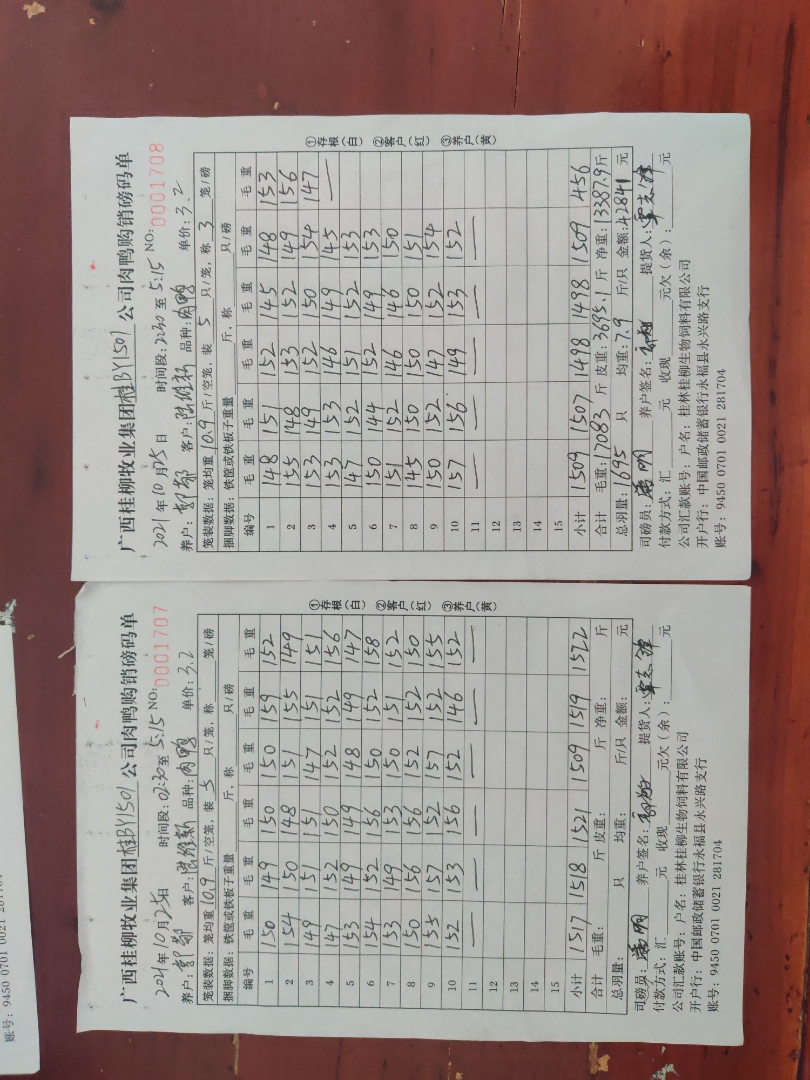 账号: 9450 0701 0021 281704
广西桂柳牧业集团桂BY1501公司肉鸭购销磅码单
2021年10月25日 时间段:02:30至5:15 NO: 0001707
养户: 客户: 品种:肉鸭 单价:3.2
笼装数据: 笼均重10.9斤/空笼, 装5只/笼, 称 笼/磅
捆脚数据: 铁筐或铁板子重量 斤, 称 只/磅
编号 毛重 毛重 毛重 毛重 毛重 毛重
1 150 149 150 150 159 152
2 154 150 148 151 155 149
3 149 151 151 147 151 151
4 147 152 150 152 152 156
5 153 149 149 148 149 147
6 154 152 156 150 152 158
7 153 149 153 150 151 152
8 150 156 156 152 152 150
9 155 157 152 157 152 155
10 152 153 156 152 146 152
11 — — — — — —
12
13
14
15
小计 1517 1518 1521 1509 1519 1522
合计 毛重: 斤 皮重: 斤 净重: 斤
总羽量: 只 均重: 斤/只 金额: 元
司磅员: 养户签名: 提货人:
付款方式: 汇 元 收现 元欠(余): 元
公司汇款账号: 户名: 桂林桂柳生物饲料有限公司
开户行: 中国邮政储蓄银行永福县永兴路支行
账号: 9450 0701 0021 281704
①存根(白) ②客户(红) ③养户(黄)
广西桂柳牧业集团桂BY1501公司肉鸭购销磅码单
2021年10月25日 时间段:2:30至5:15 NO: 0001708
养户: 客户: 品种:肉鸭 单价:3.2
笼装数据: 笼均重10.9斤/空笼, 装5只/笼, 称3笼/磅
捆脚数据: 铁筐或铁板子重量 斤, 称 只/磅
编号 毛重 毛重 毛重 毛重 毛重 毛重
1 148 151 152 145 148 153
2 155 148 153 152 149 156
3 153 149 152 150 154 147
4 153 153 146 149 145 —
5 147 152 151 152 153
6 150 144 152 149 153
7 151 152 146 146 150
8 145 150 150 150 151
9 150 152 147 152 154
10 157 156 149 153 152
11 — — — — —
12
13
14
15
小计 1509 1507 1498 1498 1509 456
合计 毛重:17083斤 皮重:3695.1斤 净重:13387.9斤
总羽量:1695只 均重:7.9斤/只 金额:42841元
司磅员: 养户签名: 提货人:
付款方式: 汇 元 收现 元欠(余): 元
公司汇款账号: 户名: 桂林桂柳生物饲料有限公司
开户行: 中国邮政储蓄银行永福县永兴路支行
账号: 9450 0701 0021 281704
①存根(白) ②客户(红) ③养户(黄)